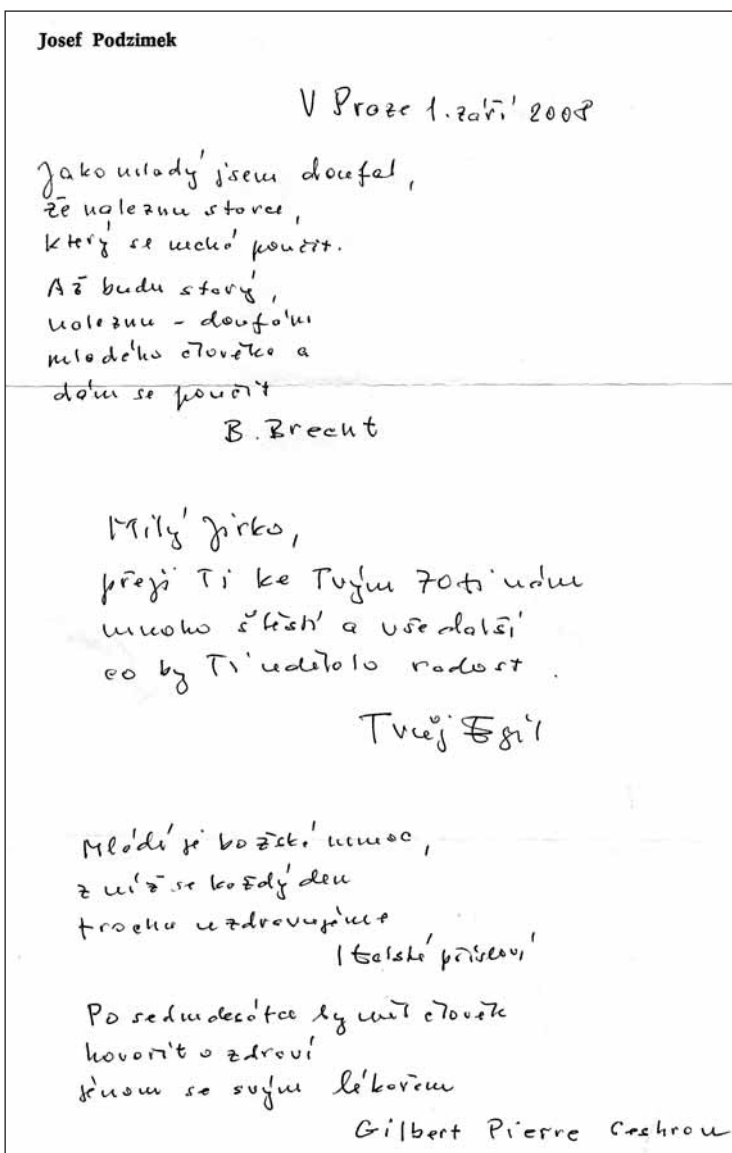 Josef Podzimek
V Praze 1. září 2008
Jako mladý jsem doufal,
že naleznu starce,
který se nechá poučit.
Až budu starý,
naleznu - doufám
mladého člověka a
dám se poučit
B. Brecht
Milý Jirko,
přeji Ti ke Tvým 70tinám
mnoho štěstí a vše další
co by Ti udělalo radost.
Tvůj
Mládí je božská nemoc,
z níž se každý den
trochu uzdravujeme
Italské přísloví
Po sedmdesátce by měl člověk
hovořit o zdraví
jenom se svým lékařem
Gilbert Pierre Ceshron